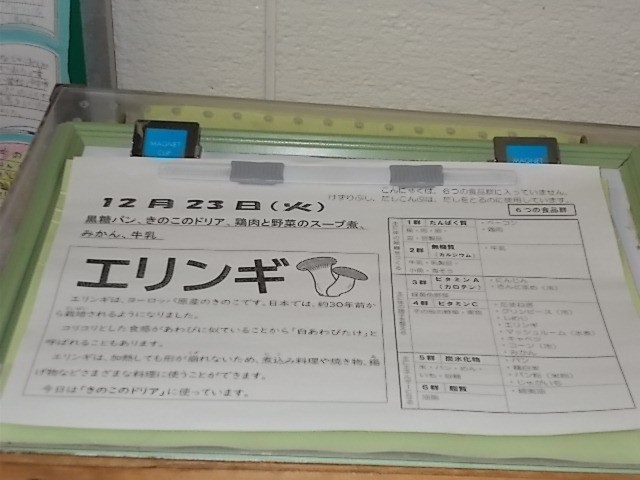 MAGNET
CLIP
MAGNET
こんにゃくは、6つの食品群に入っていません。
けずりぶし、だしこんぶは、だしをとるのに使用しています。
12月23日(火)
黒糖パン、きのこのドリア、鶏肉と野菜のスープ煮、
みかん、牛乳
エリンギ
エリンギは、ヨーロッパ原産のきのこです。日本では、約30年前か
ら栽培されるようになりました。
コリコリとした食感があわびに似ていることから「白あわびたけ」と
呼ばれることもあります。
エリンギは、加熱しても形が崩れないため、煮込み料理や焼き物、揚
げ物などさまざまな料理に使うことができます。
今日は「きのこのドリア」に使っています。
6つの食品群
1群 たんぱく質
・ベーコン
・鶏肉
2群 無機質
(カルシウム)
・牛乳
牛乳・乳製品・
小魚・海そう
3群 ビタミンA
(カロテン)
・にんじん
緑黄色野菜
4群 ビタミンC
その他の野菜・果物
・しめじ
・エリンギ
・キャベツ
・みかん
5群 炭水化物
米・パン・めん・
いも・砂糖
・パン
・じゃがいも
6群 脂質
油脂